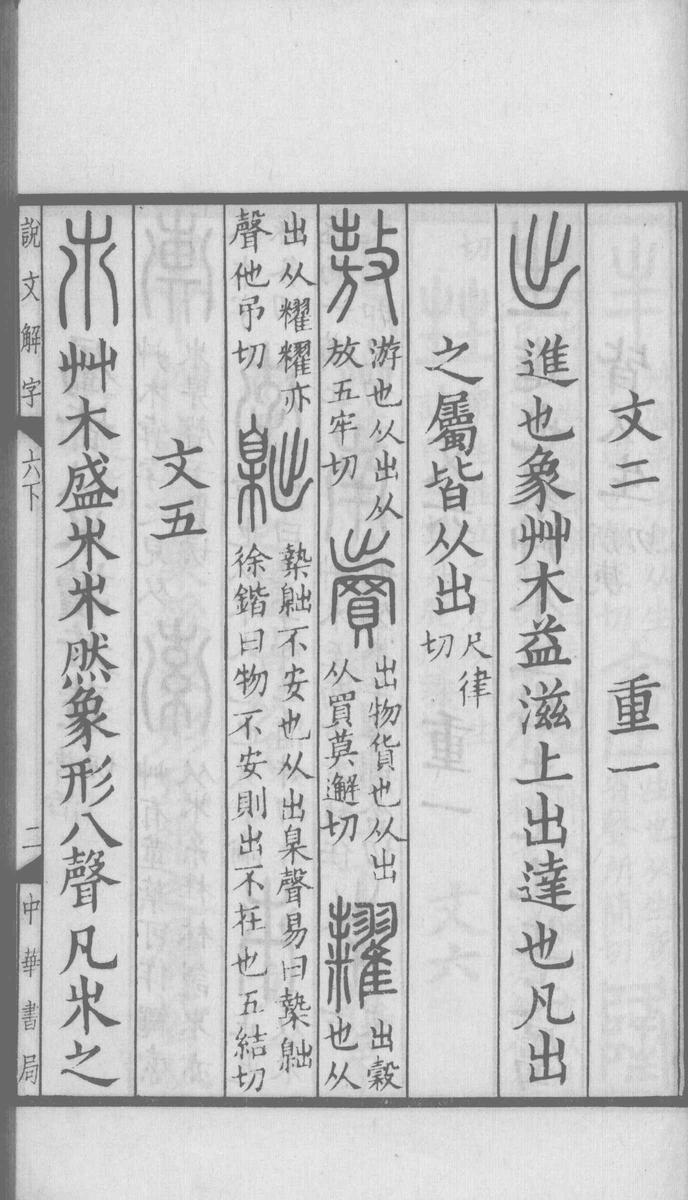 文二 重一
𡳿 進也象艸木益滋上出達也凡出
之屬皆从出尺律切
敖 游也从出从放五牢切 賣 出物貨也从出从買莫邂切 糶 出穀也从
出从䊮䊮亦聲他弔切 𣎴 槷䵳不安也从出臬聲易曰槷䵳徐鍇曰物不安則出不在也五結切
文五
𣎵 艸木盛𣎵𣎵然象形八聲凡𣎵之
說文解字 六下 二 中華書局